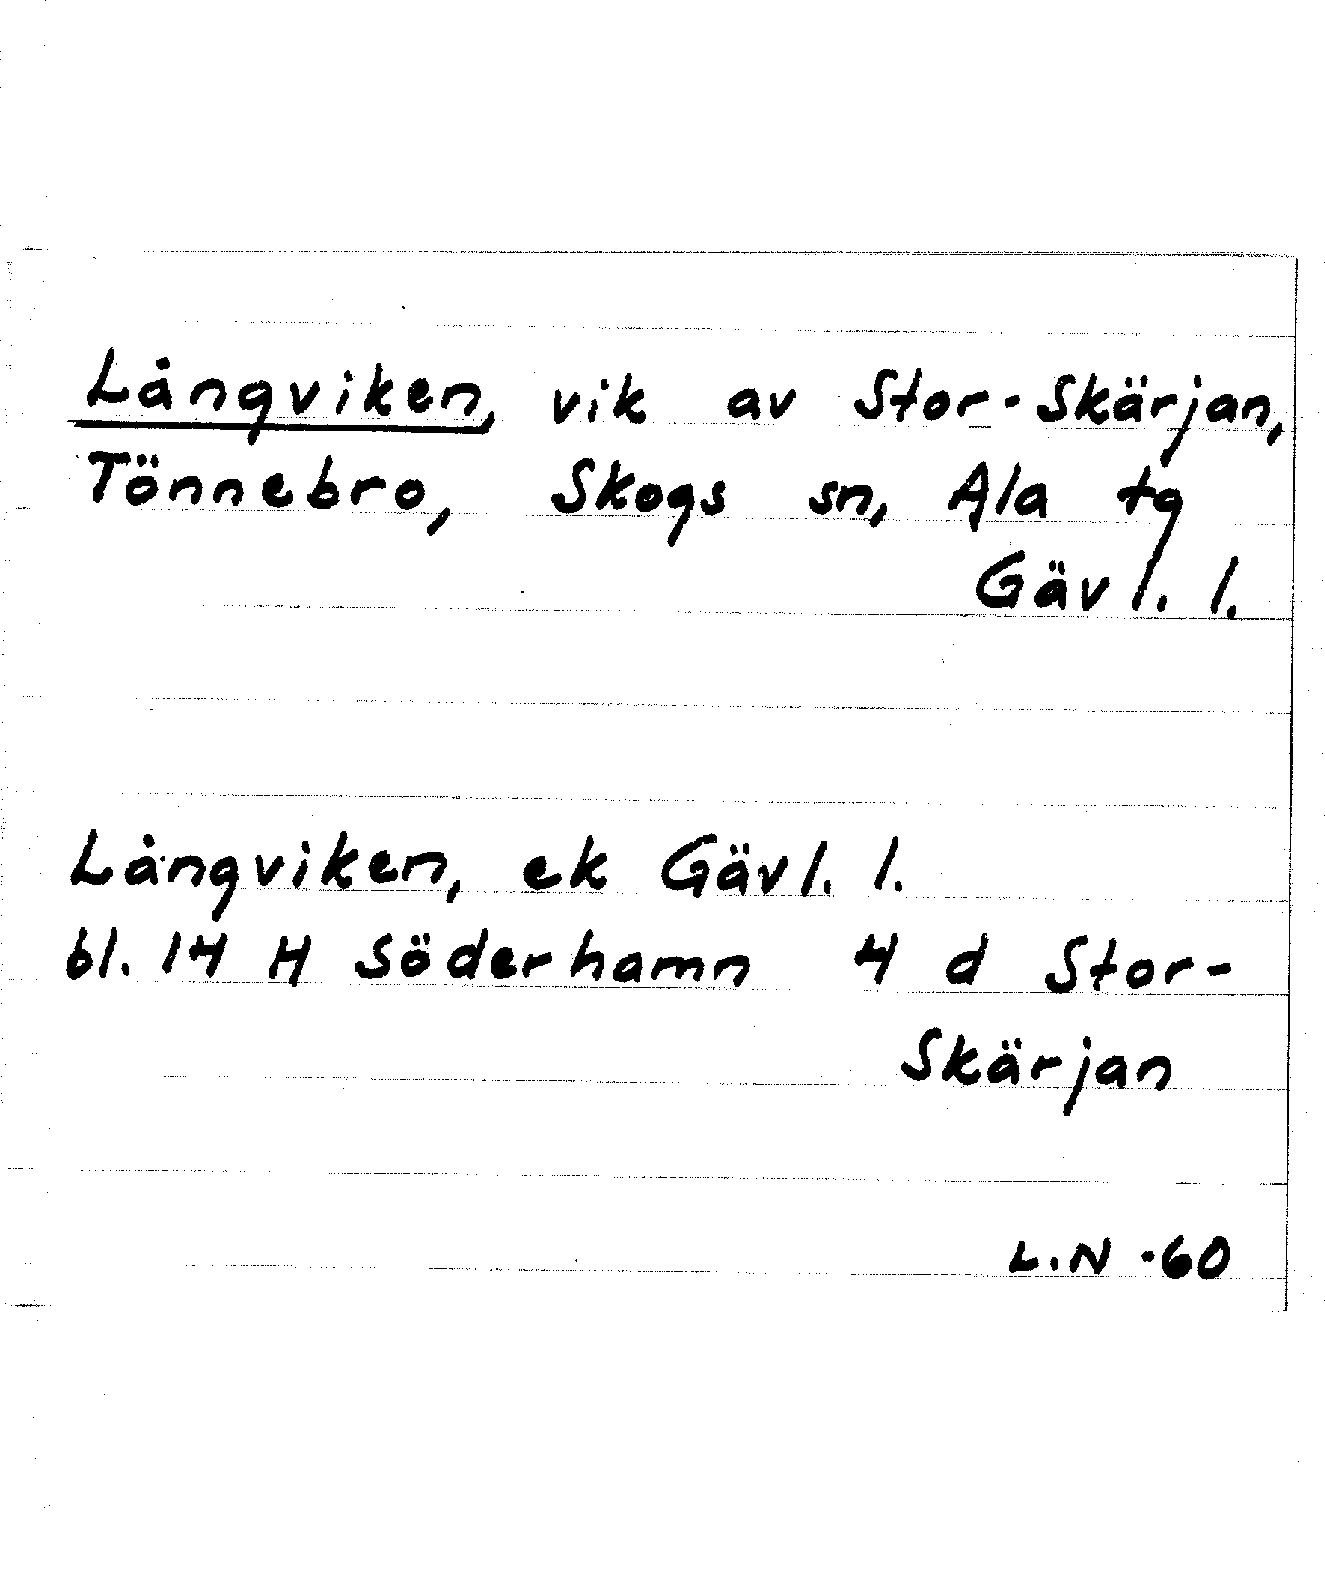 Långviken, vik av Stor-Skärjan,
Tönnebro, Skogs sn, Ala tg
Gävl. l.
Långviken, ek Gävl. l.
bl. 14 H Söderhamn 4 d Stor-
Skärjan
L.N -60